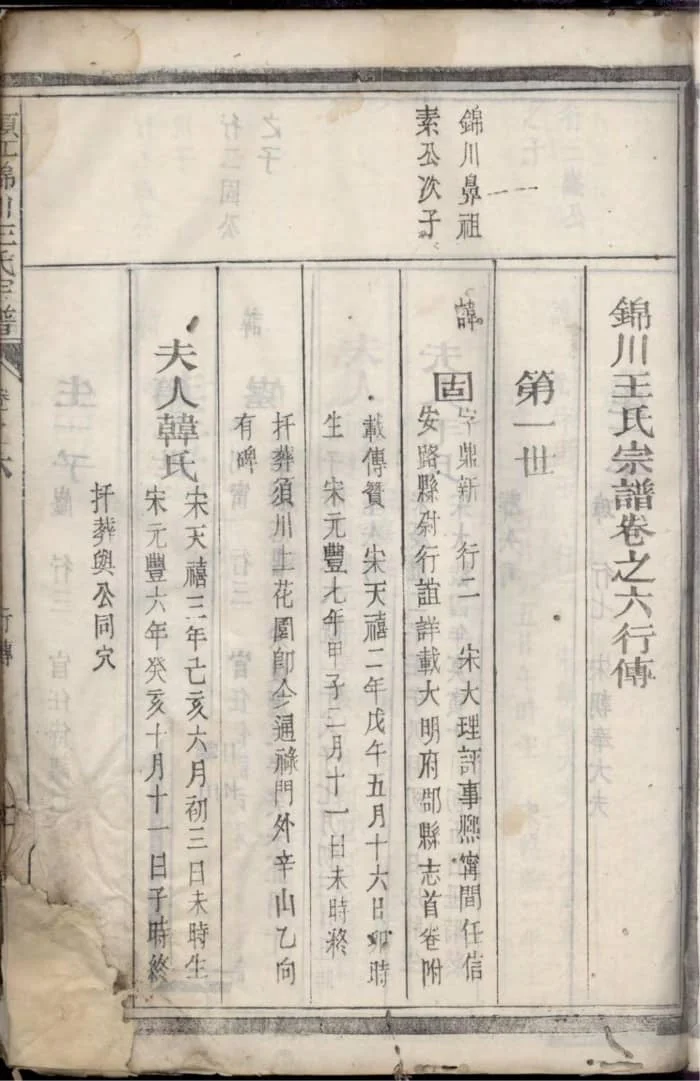 錦川王氏宗譜卷之六行傳
第一世
錦川鼻祖
素公次子
諱固
字鼎新 行二 宋大理評事熈甯間任信
安路縣尉行誼詳載大明府郡縣志首卷附
載傳贊 宋天禧二年戊午五月十六日卯時
生 宋元豐七年甲子二月十一日未時終
扦葬須川土花園即今通祿門外辛山乙向
有碑
夫人韓氏
宋天禧三年己亥六月初三日未時生
宋元豐六年癸亥十月十一日子時終
扦葬與公同穴
須江錦川王氏宗譜 卷之六 行傳